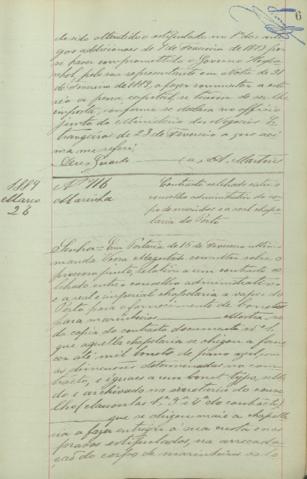 6
devido attendido e estipulado no 1º dos arti-
gos addicionaes de 7 de Fevereiro de 1873 por
se haver compromettido o Governo Hespa-
nhol, pelo seu representante em Nota de 21
de Fevereiro de 1889, a fazer commutar a este
réo a pena capital, se tivesse de ser-lhe
imposta, conforme se declara no officio
junto do Ministerio dos Negocios Es-
trangeiros de 23 de Fevereiro a que aci-
ma me refiro.
Deus Guarde (a) A. Martens
1889
Março
26
Nº 716
Marinha
Contracto celebrado entre o
conselho administrativo do cor-
po de marinheiros e a real chapel-
aria do Porto
Senhor = Em Portaria de 15 de Fevereiro ultimo
manda Vossa Magestade consultar sobre o
processo junto, relativo a um contracto ce-
lebrado entre o conselho administrativo
e a real e imperial chapelaria a vapor do
Porto para o fornecimento de bonets
para marinheiros. Mostra-se
da copia do contracto documento nº 1,
que aquella chapelaria se obrigou a forne-
cer até mil bonets de panno azul, com
as dimensões determinadas no con-
tracto, e iguaes a um bonet typo, sella-
do e archivado na secretaria do conse-
lho (clausulas 1ª 3ª e 4ª do contracto)
que se obrigou mais a chapella-
ria a fazer entrega á sua custa nos
prazos estipulados, na arrecada-
ção do corpo de marinheiros